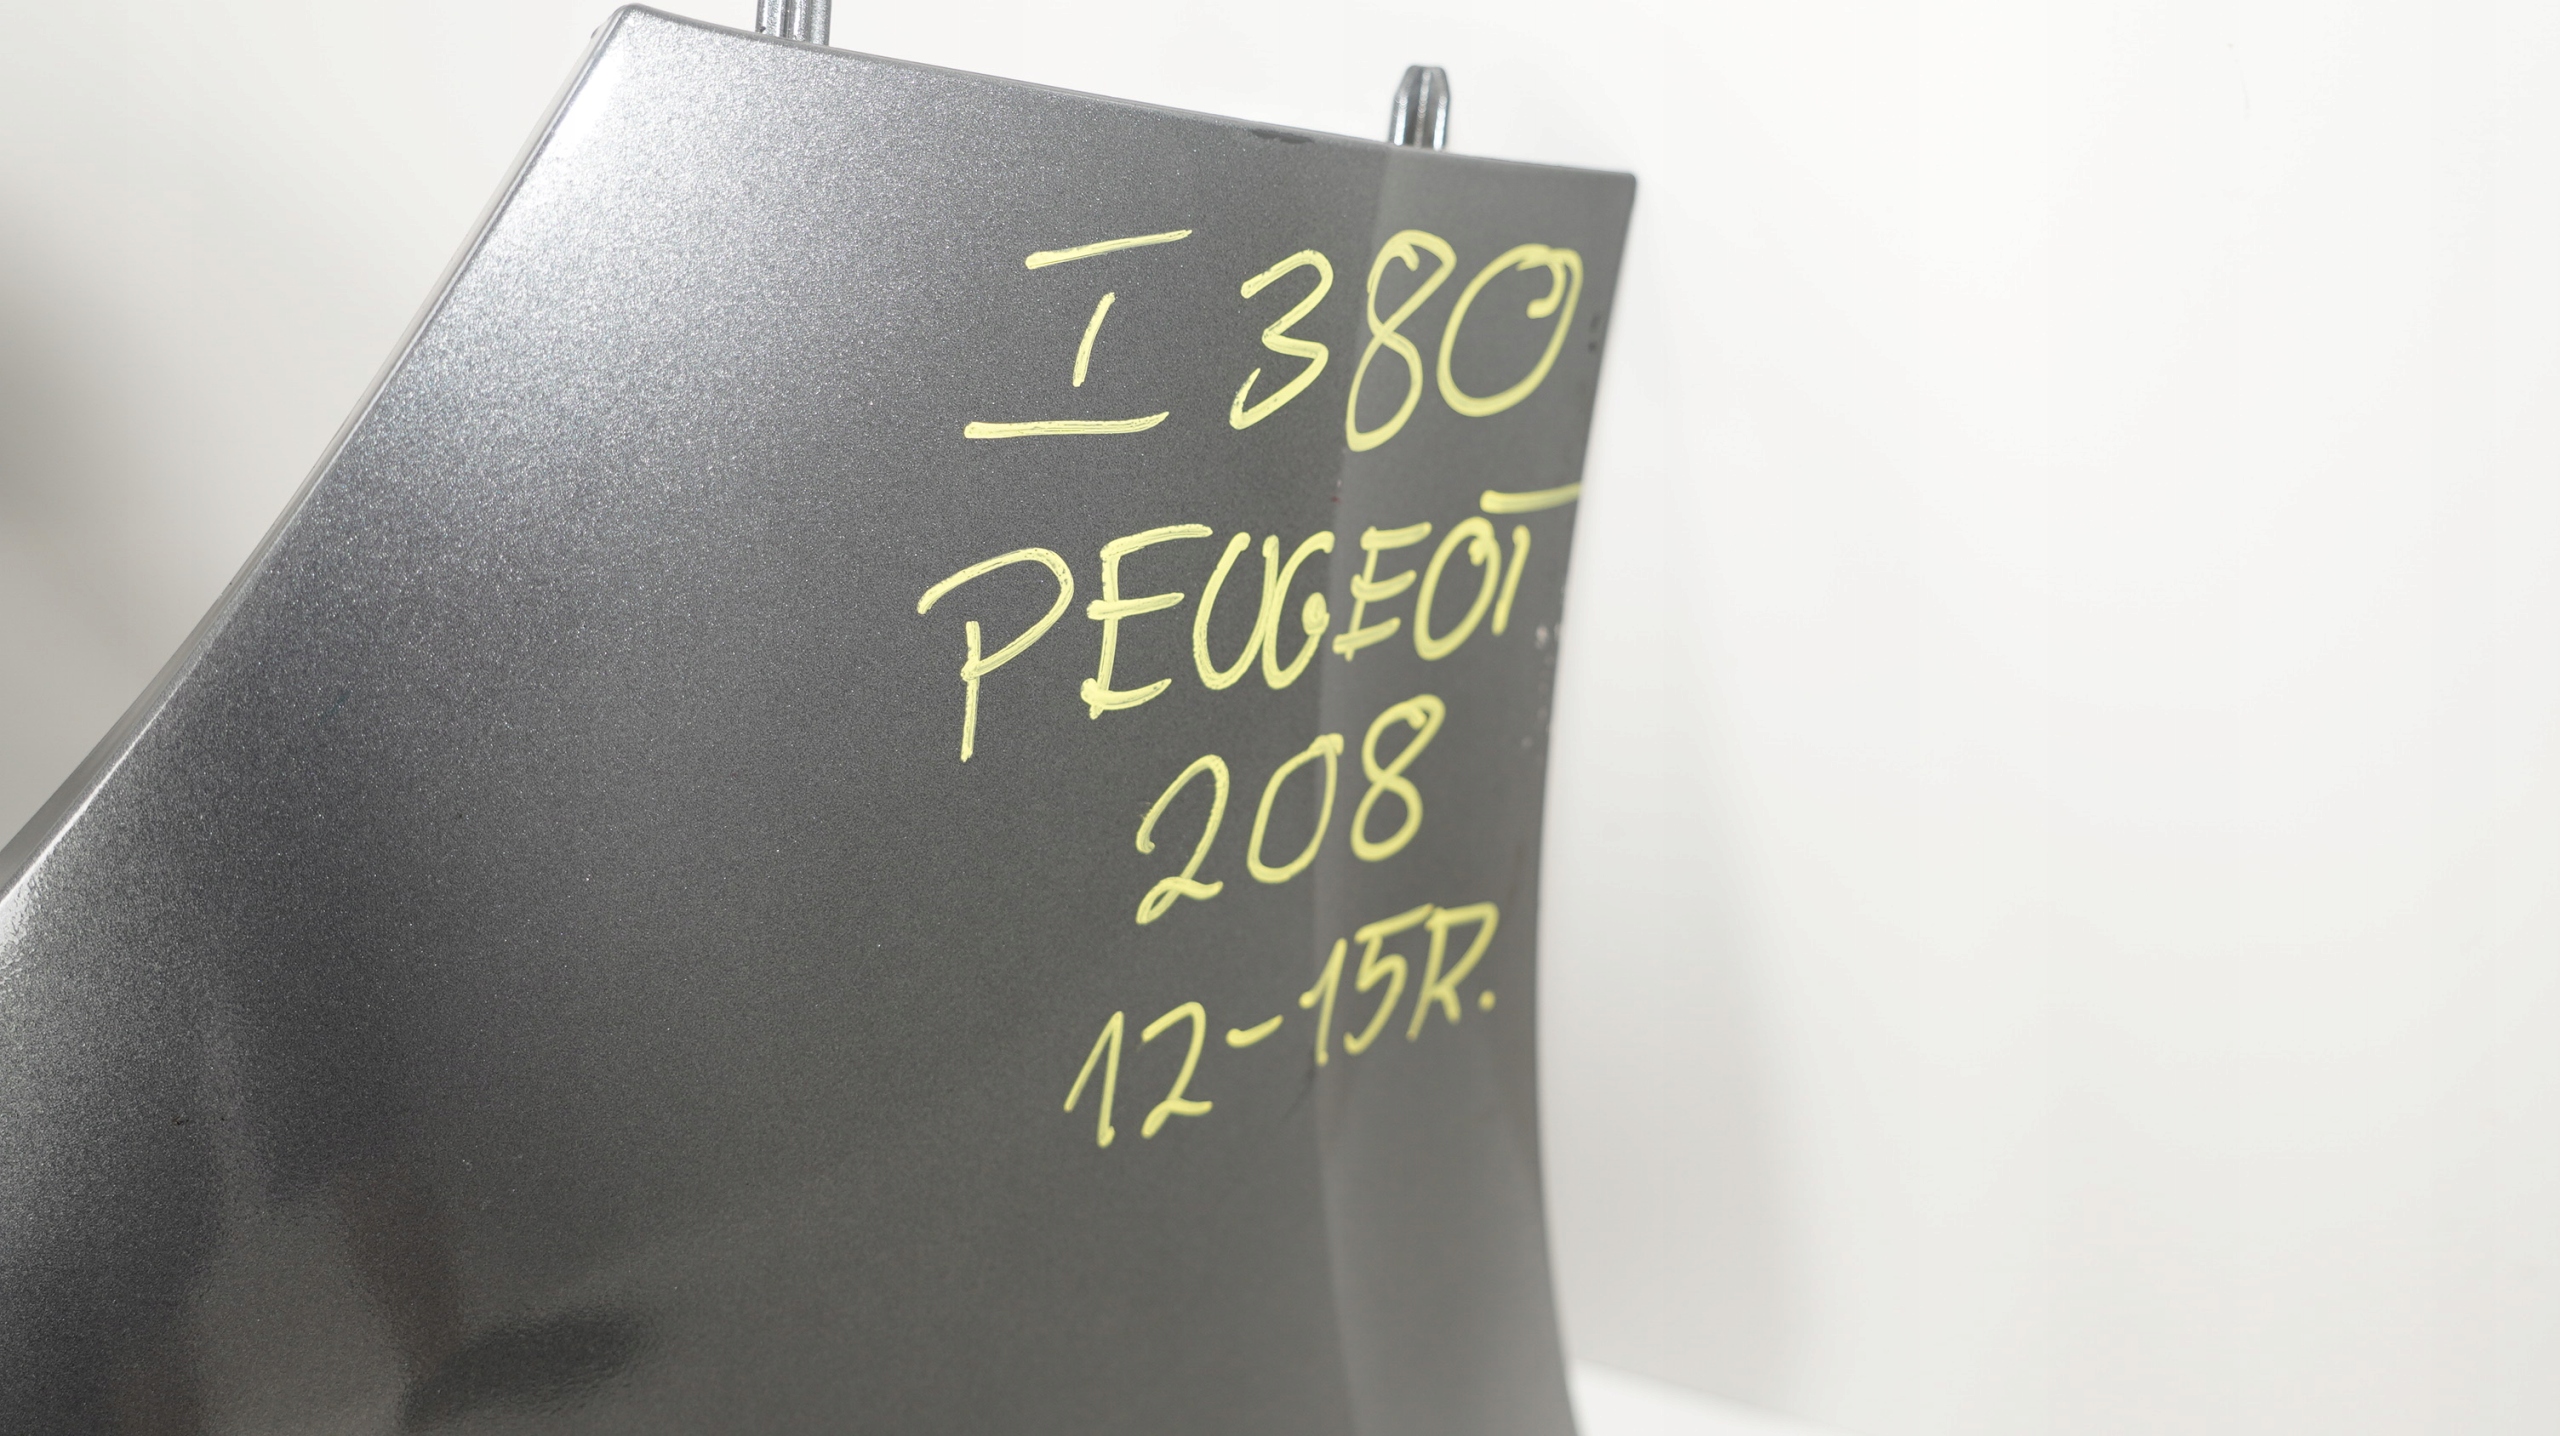 I 380
PEUGEOT
208
12-15R.